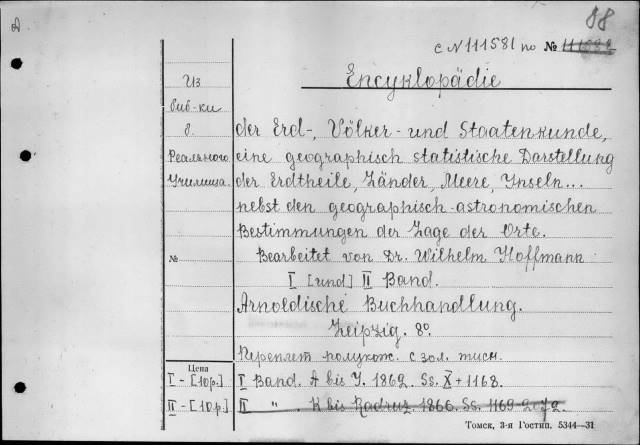 88
с № 111581 по №
Encyklopädie
Из
биб-ки
б.
Реального
Училища.
der Erd-, Völker- und Staatenkunde,
eine geographisch statistische Darstellung
der Erdtheile, Länder, Meere, Inseln...
nebst den geographisch-astronomischen
Bestimmungen der Lage der Orte.
№ Bearbeitet von Dr. Wilhelm Hoffmann
I [und] II Band.
Arnoldische Buchhandlung.
Leipzig. 8°.
Переплет полукож. с зол. тисн.
Цена
I - [10 р.] I Band. A bis J. 1862. Ss. X + 1168.
II - [10 р.] II " . K bis Radruz. 1866. Ss. 1169-2072.
Томск, 3-я Гостип. 5344—31